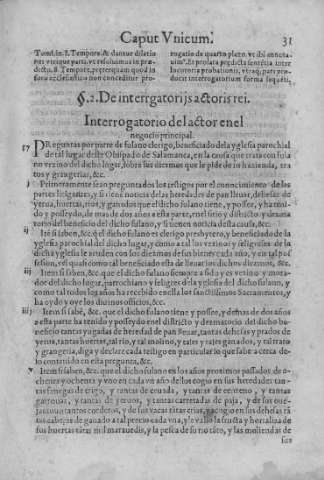 Caput Vnicum. 31
§. 2. De interrgatorijs actoris rei.
Interrogatorio del actor en el
negocio principal.
PReguntas por parte de fulano clerigo, beneficiado de la yglesia parochial
de tal lugar deste Obispado de Salamanca, en la causa que trata con fula
no vezino del dicho lugar, sobre los diezmos que le pide de su hazienda, tra
tos y grangerias, &c.
j Primeramente sean preguntados los testigos por el conocimiento de las
partes litigantes, y si tienē noticia de las heredades de pan lleuar, dehesas de
yerua, huertas, rios, y ganados que el dicho fulano tiene, y possee, y ha tenido
y posseydo, de mas de dos años a esta parte, en el sitio y districto y dezma
torio del beneficio del dicho fulano, y si tienen noticia desta causa, &c.
ij Itē si saben, &c. q̄ el dicho fulano es clerigo presbytero, y beneficiado de la
yglesia parochial del dicho lugar, y como a tal los vezinos y feligreses de la
dicha yglesia le acuden con los diezmos de sus bienes cada año, y en tal pos
session, vel quasi como tal beneficiado esta de lleuar los dichos diezmos, &c.
iij Item si saben, &c. que el dicho fulano siempre a sido y es vezino y mora-
dor del dicho lugar, parrochiano y feligres de la yglesia del dicho fulano, y
como tal todos los años ha recebido en ella los sanctissimos Sacramentos, y
ha oydo y oye los diuinos officios, &c.
iiij Item si sabē, &c. que el dicho fulano tiene y possee, y demas de dos años
a esta parte ha tenido y posseydo en el districto y dezmatorio del dicho be-
neficio tantas yugadas de heredad de pan lleuar, tantas dehesas y prados de
yerua, tantas huertas, tal rio, y tal molino, y tales y tales ganados, y tal trato
y grangeria, diga y declare cada testigo en particular lo que sabe a cerca de-
lo contenido en esta pregunta, &c.
v Item si saben, &c. que el dicho fulano en los años proximos passados de o-
chenta y ochenta y vno en cada vn año dellos cogio en sus heredades tan-
tas fanegas de trigo, y tantas de ceuada, y tantas de centeno, y tantas
garrouas, y tantas de yeruos, y tantas carretadas de paja, y de sus oue-
jas tantos corderos, y de sus vacas tātas crias, y acogio en sus dehesas tā
tas cabeças de ganado a tal precio cada vna, y le valio la fructa y hortaliza de
sus huertas tātas mil marauedis, y la pesca de su rio tāto, y las moliendas de
sus